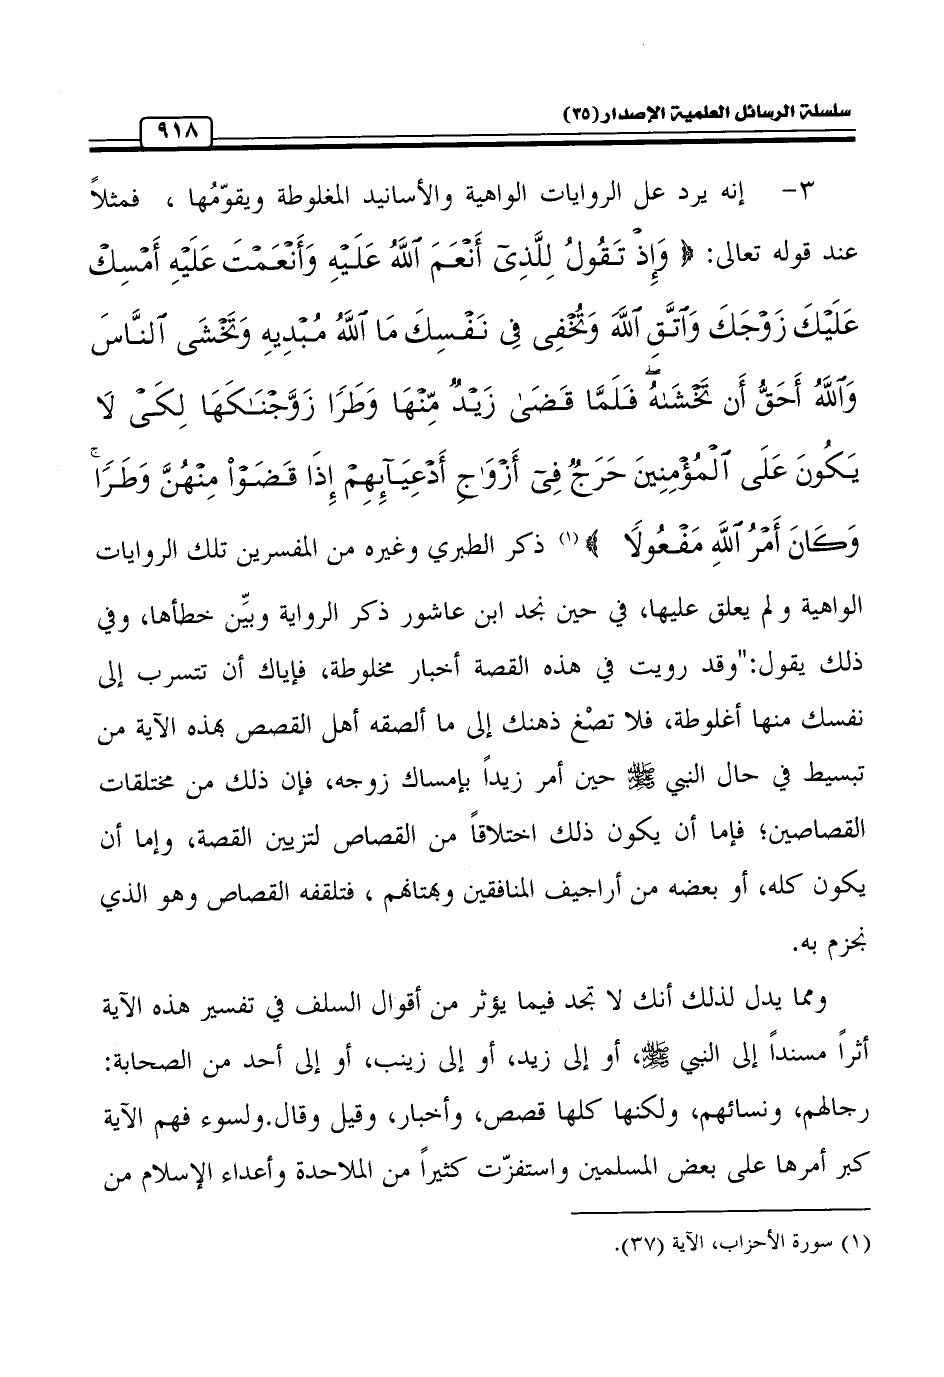 سلسلة الرسائل العلمية الإصدار (٣٥)
٩١٨
٣- إنه يرد عل الروايات الواهية والأسانيد المغلوطة ويقوّمُها ، فمثلاً
عند قوله تعالى: ﴿ وَإِذْ تَقُولُ لِلَّذِىٓ أَنْعَمَ ٱللَّهُ عَلَيْهِ وَأَنْعَمْتَ عَلَيْهِ أَمْسِكْ
عَلَيْكَ زَوْجَكَ وَٱتَّقِ ٱللَّهَ وَتُخْفِى فِى نَفْسِكَ مَا ٱللَّهُ مُبْدِيهِ وَتَخْشَى ٱلنَّاسَ
وَٱللَّهُ أَحَقُّ أَن تَخْشَىٰهُ ۖ فَلَمَّا قَضَىٰ زَيْدٌ مِّنْهَا وَطَرًا زَوَّجْنَـٰكَهَا لِكَىْ لَا
يَكُونَ عَلَى ٱلْمُؤْمِنِينَ حَرَجٌ فِىٓ أَزْوَٰجِ أَدْعِيَآئِهِمْ إِذَا قَضَوْا۟ مِنْهُنَّ وَطَرًا ۚ
وَكَانَ أَمْرُ ٱللَّهِ مَفْعُولًا ﴾(١) ذكر الطبري وغيره من المفسرين تلك الروايات
الواهية ولم يعلق عليها، في حين نجد ابن عاشور ذكر الرواية وبيَّن خطأها، وفي
ذلك يقول:"وقد رويت في هذه القصة أخبار مخلوطة، فإياك أن تتسرب إلى
نفسك منها أغلوطة، فلا تصْغ ذهنك إلى ما ألصقه أهل القصص بهذه الآية من
تبسيط في حال النبي ﷺ حين أمر زيداً بإمساك زوجه، فإن ذلك من مختلقات
القصاصين؛ فإما أن يكون ذلك اختلاقاً من القصاص لتزيين القصة، وإما أن
يكون كله، أو بعضه من أراجيف المنافقين وبهتانهم ، فتلقفه القصاص وهو الذي
نجزم به.
ومما يدل لذلك أنك لا تجد فيما يؤثر من أقوال السلف في تفسير هذه الآية
أثراً مسنداً إلى النبي ﷺ، أو إلى زيد، أو إلى زينب، أو إلى أحد من الصحابة:
رجالهم، ونسائهم، ولكنها كلها قصص، وأخبار، وقيل وقال.ولسوء فهم الآية
كبر أمرها على بعض المسلمين واستفزّت كثيراً من الملاحدة وأعداء الإسلام من
(١) سورة الأحزاب، الآية (٣٧).